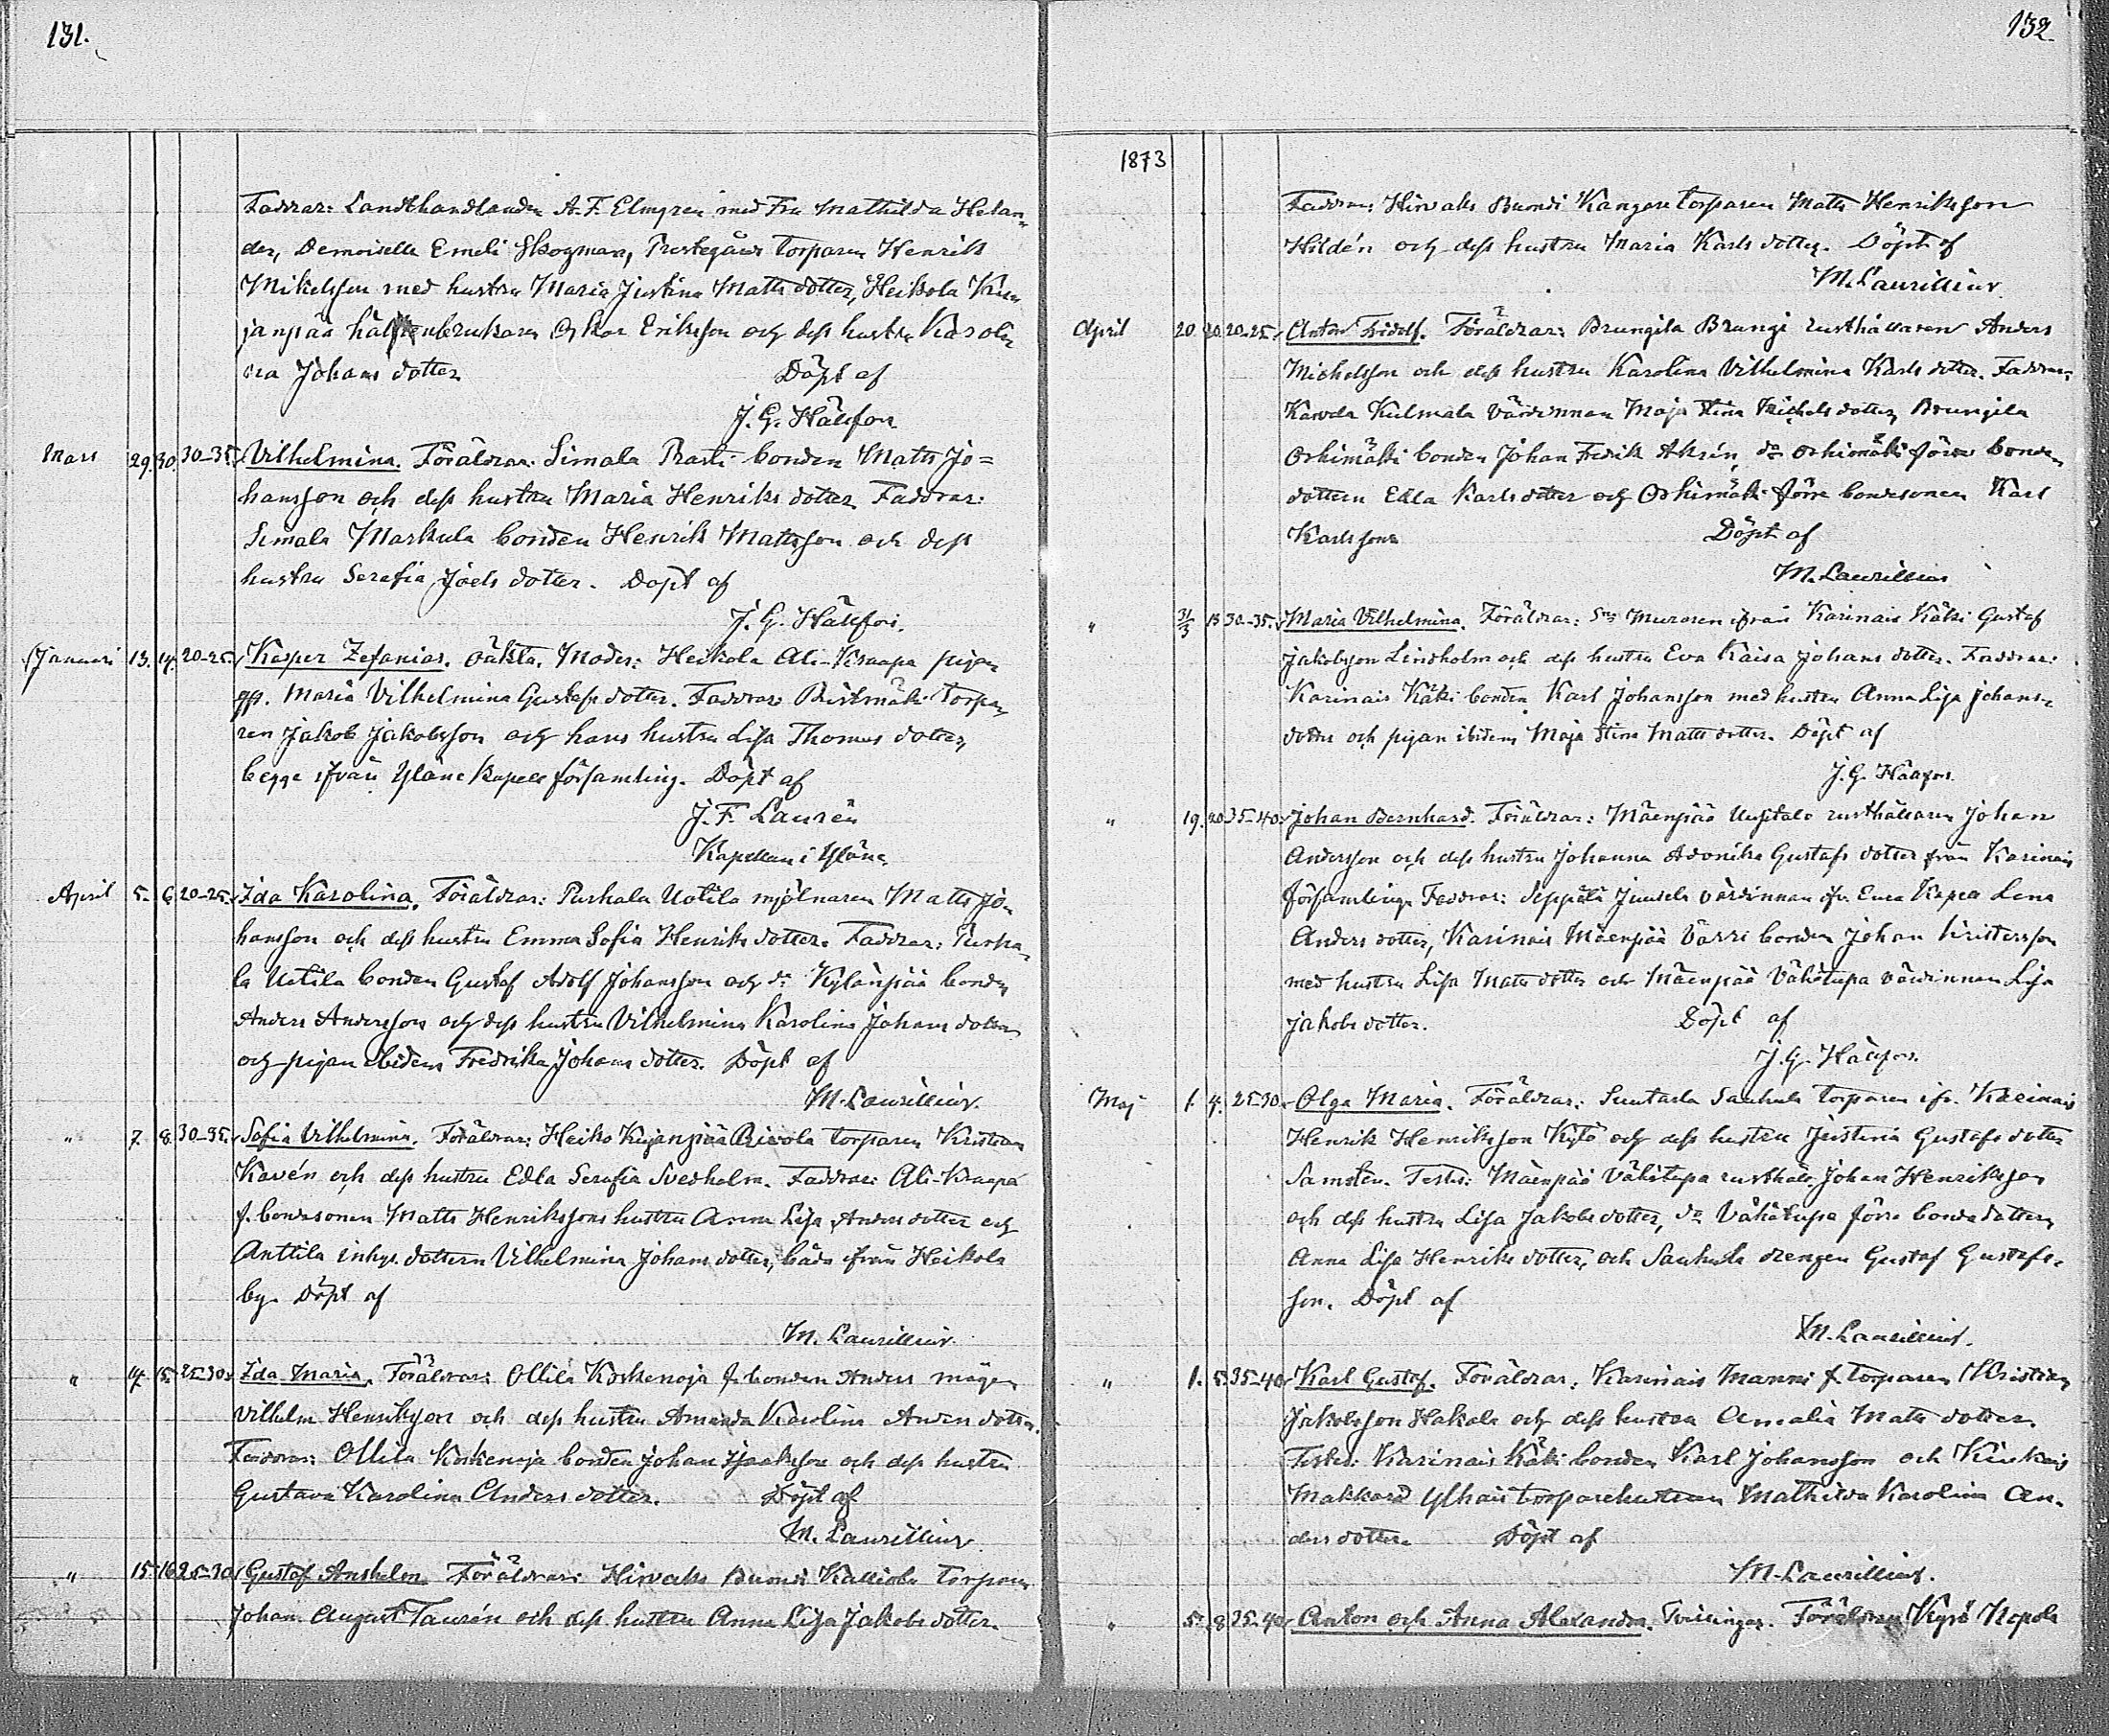 131.
Faddrar: Landthandlanden A. F. Elmgren med Fru Mathilda Helan-
der, Demoiselle Emeli Skogman, Prestegårds torparen Henrik
Mikelsson med hustru Maria Justina Matts dotter, Heikola Kui-
janpää hälftenbrukaren Oskar Eriksson och dess hustru Karoli-
na Johans dotter Döpt af
J. G. Hälfors
Mars 29. 30. 30-35. Vilhelmina. Föräldrar: Simala Prasti bonden Matts Jo=
hansson och dess hustru Maria Henriks dotter Faddrar:
Simala Markula bonden Henrik Mattsson och dess
hustru Serafia Joels dotter. Döpt af
J. G. Hälfors.
Januari 13. 14. 20-25. Kasper Zefanias. oäkta. Moder: Heikola Ali-Kraapa pigan
Maria Vilhelmina Gustafs dotter. Faddrar: Ristmäki torpa-
ren Jakob Jakobsson och hans hustru Lisa Thomas dotter,
begge ifrån Yläne Kapell församling. Döpt af
J. F. Laurén
Kapellan i Yläne
April 5. 6. 20-25. Ida Karolina. Föräldrar: Purhala Uotila mjölnaren Matts Jo-
hansson och dess hustru Emma Sofia Henriks dotter. Faddrar: Purha-
la Uotila bonden Gustaf Adolf Johansson och d:o Kylänpää bonden
Anders Andersson och dess hustru Vilhelmina Karolina Johans dotter
och pigan ibidem Fredrika Johans dotter. Döpt af
M. Laurillius.
" 7. 8. 30-35. Sofia Vilhelmina. Föräldrar: Heiko Kujanpää Rivola torparen Kristian
Kavén och dess hustru Edla Serafia Svedholm. Faddrar: Ali-Kraapa
f. bondesonen Matts Henrikssons hustru Anna Lisa Anders dotter och
Anttila inhys. dottern Vilhelmina Johans dotter, båda från Heikola
by. Döpt af
M. Laurillius.
" 14. 15. 25-30. Ida Maria. Föräldrar: Ollila Korkenoja f. bonden Anders mågen
Vilhelm Henriksson och dess hustru Amanda Karolina Anders dotter.
Faddrar: Ollila Korkenoja bonden Johan Isaaksson och dess hustru
Gustava Karolina Anders dotter. Döpt af
M. Laurillius.
" 15. 16. 25-30. Gustaf Anshelm Föräldrar: Hirvaks Buondi Kalliola torparen
Johan August Taurén och dess hustru Anna Lisa Jakobs dotter.
132.
1873
Faddrar: Hirvaks Buondi Kangare torparen Matts Henriksson
Hildén och dess hustru Maria Karls dotter. Döpt af
M. Laurillius.
April 20. 20. 20-25. Anton Fridolf. Föräldrar: Brungila Brungi rusthållaren Anders
Michelsson och dess hustru Karolina Vilhelmina Karls dotter. Faddrar:
Karvela Kulmala värdinnan Maja Stina Michels dotter, Brungila
Orhimäki bonden Johan Fredrik Aksén, d:o Orhimäki förra bonde-
dottern Edla Karls dotter och Orhimäki förra bondesonen Karl
Karlsson Döpt af
M. Laurillius
" 31/3 13 30-35. Maria Vilhelmina. Föräldrar: Muraren ifrån Karinais Käki Gustaf
Jakobsson Lindholm och dess hustru Eva Kaisa Johans dotter. Faddrar:
Karinais Käki bonden Karl Johansson med hustru Anna Lisa Johans-
dotter och pigan ibidem Maja Stina Matts dotter. Döpt af
J. G. Hälfors.
" 19. 20 35-40. Johan Bernhard. Föräldrar: Mäenpää Uusitalo rusthållaren Johan
Andersson och dess hustru Johanna Adonika Gustafs dotter från Karinais
församling. Faddrar: Seppälä Juusela värdinnan ifr. Eura Kapell Lena
Anders dotter, Karinais Mäenpää Värri bonden Johan Kristersson
med hustru Lisa Matts dotter och Mäenpää Vähätupa värdinnan Lisa
Jakobs dotter. Döpt af
J. G. Hälfors.
Maj 1. 4. 25-30. Olga Maria. Föräldrar: Suutarla Sauhula torparen ifr. Karinais
Henrik Henriksson Kylö och dess hustru Justina Gustafs dotter
Samstén. Testes: Mäenpää Vähätupa rusthåll. Johan Henriksson
och dess hustru Lisa Jakobs dotter, d:o Vähätupa förra bonde dottern
Anna Lisa Henriks dotter, och Sauhula drengen Gustaf Gustafs-
son. Döpt af
M. Laurillius.
" 1. 5. 35-40. Karl Gustaf. Föräldrar: Karinais Manni f. torparen Kristian
Jakobsson Hakala och dess hustru Amalia Matts dotter.
Testes: Karinais Käki bonden Karl Johansson och
Makkara torparehustrun Mathilda Karolina An-
ders dotter. Döpt af
M. Laurillius.
" 5. 8. 35-40. Anton och Anna Alexandra. Tvillingar. Föräldrar: Kyrö Nopola